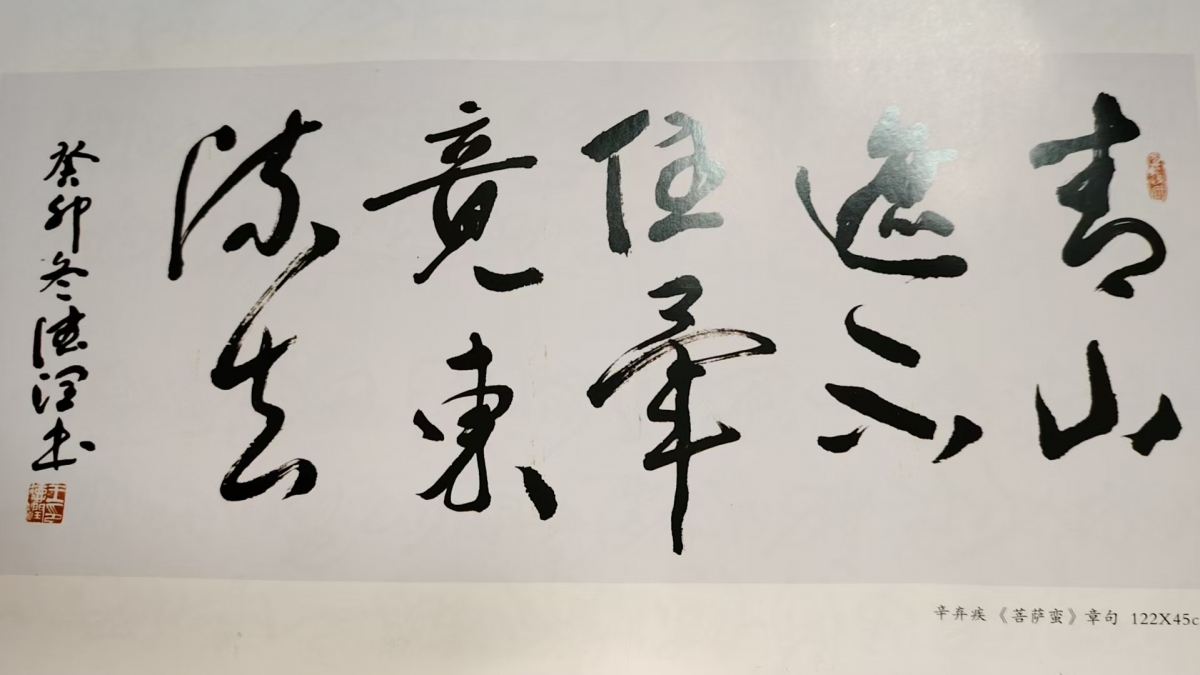 青山
遮不
住畢
竟東
流去
癸卯冬德潤书
辛弃疾《菩萨蛮》章句 122X45c